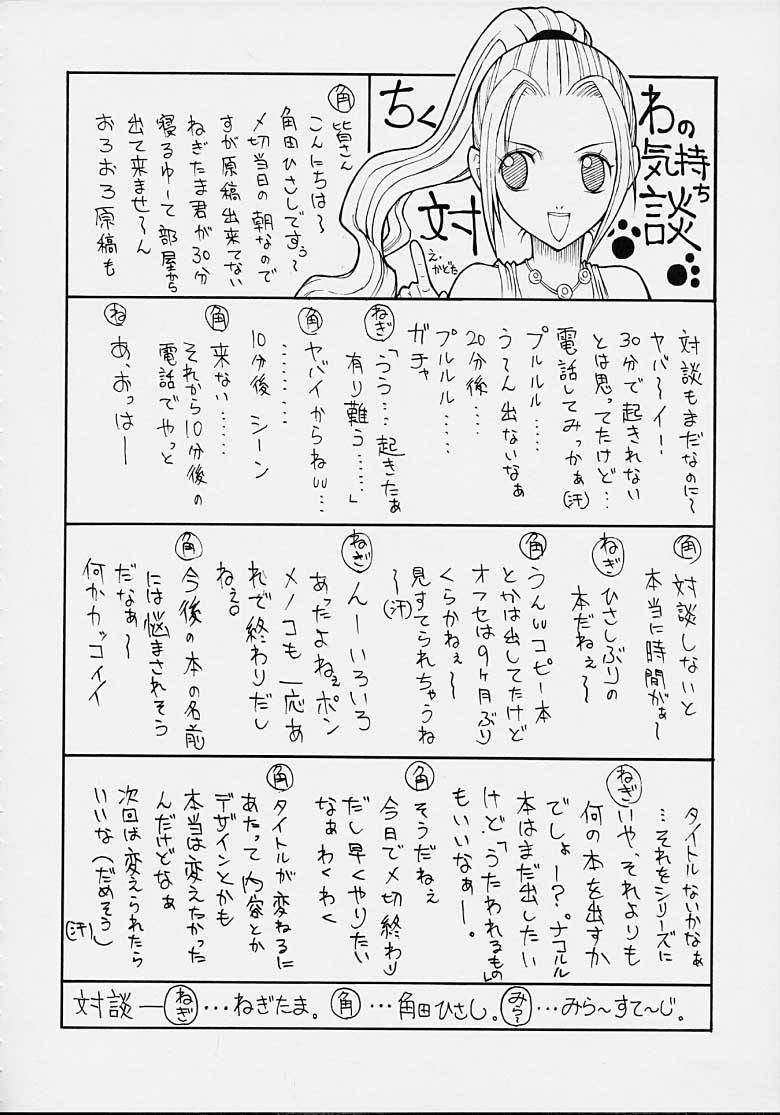 ちくわの気持ち
対談
え・かどた
角 皆さん
こんにちは〜
角田ひさしですぅ〜
〆切当日の朝なので
すが原稿出来てない
ねぎたま君が30分
寝るゆーて部屋から
出て来ませ〜ん
おろおろ原稿も
対談もまだなのに〜
ヤバ〜イー!
30分で起きれない
とは思ってたけど…
電話してみっかぁ(汗)
プルルル……
う〜ん出ないなぁ
20分後……
プルルル……
ガチャ
ねぎ「うう…起きたぁ
有り難う……」
角 ヤバイからねw…
………
10分後 シーン
角 来ない……
それから10分後の
電話でやっと
ね あ、おっはー
角 対談しないと
本当に時間がぁ〜
ねぎ ひさしぶりの
本だねぇ〜
角 うんwコピー本
とかは出してたけど
オフセは9ヶ月ぶり
くらかねぇ〜
見すてられちゃうね
〜(汗)
ねぎ んーいろいろ
あったよねぇポン
メノコも一応あ
れで終わりだし
ねぇ。
角 今後の本の名前
には悩まされそう
だなぁ〜
何かカッコイイ
タイトルないかなぁ
…それをシリーズに
ねぎ いや、それよりも
何の本を出すか
でしょー?。ナコルル
本はまだ出したい
けど「うたわれるもの」
もいいなぁー。
角 そうだねぇ
今日で〆切終わり
だし早くやりたい
なぁわくわく
角 タイトルが変ねるに
あたって内容とか
デザインとかも
本当は変えたかった
んだけどなぁ
次回は変えられたら
いいな(だめそう)
(汗)
対談―ねぎ…ねぎたま。角…角田ひさし。みら〜…みら〜すて〜じ。